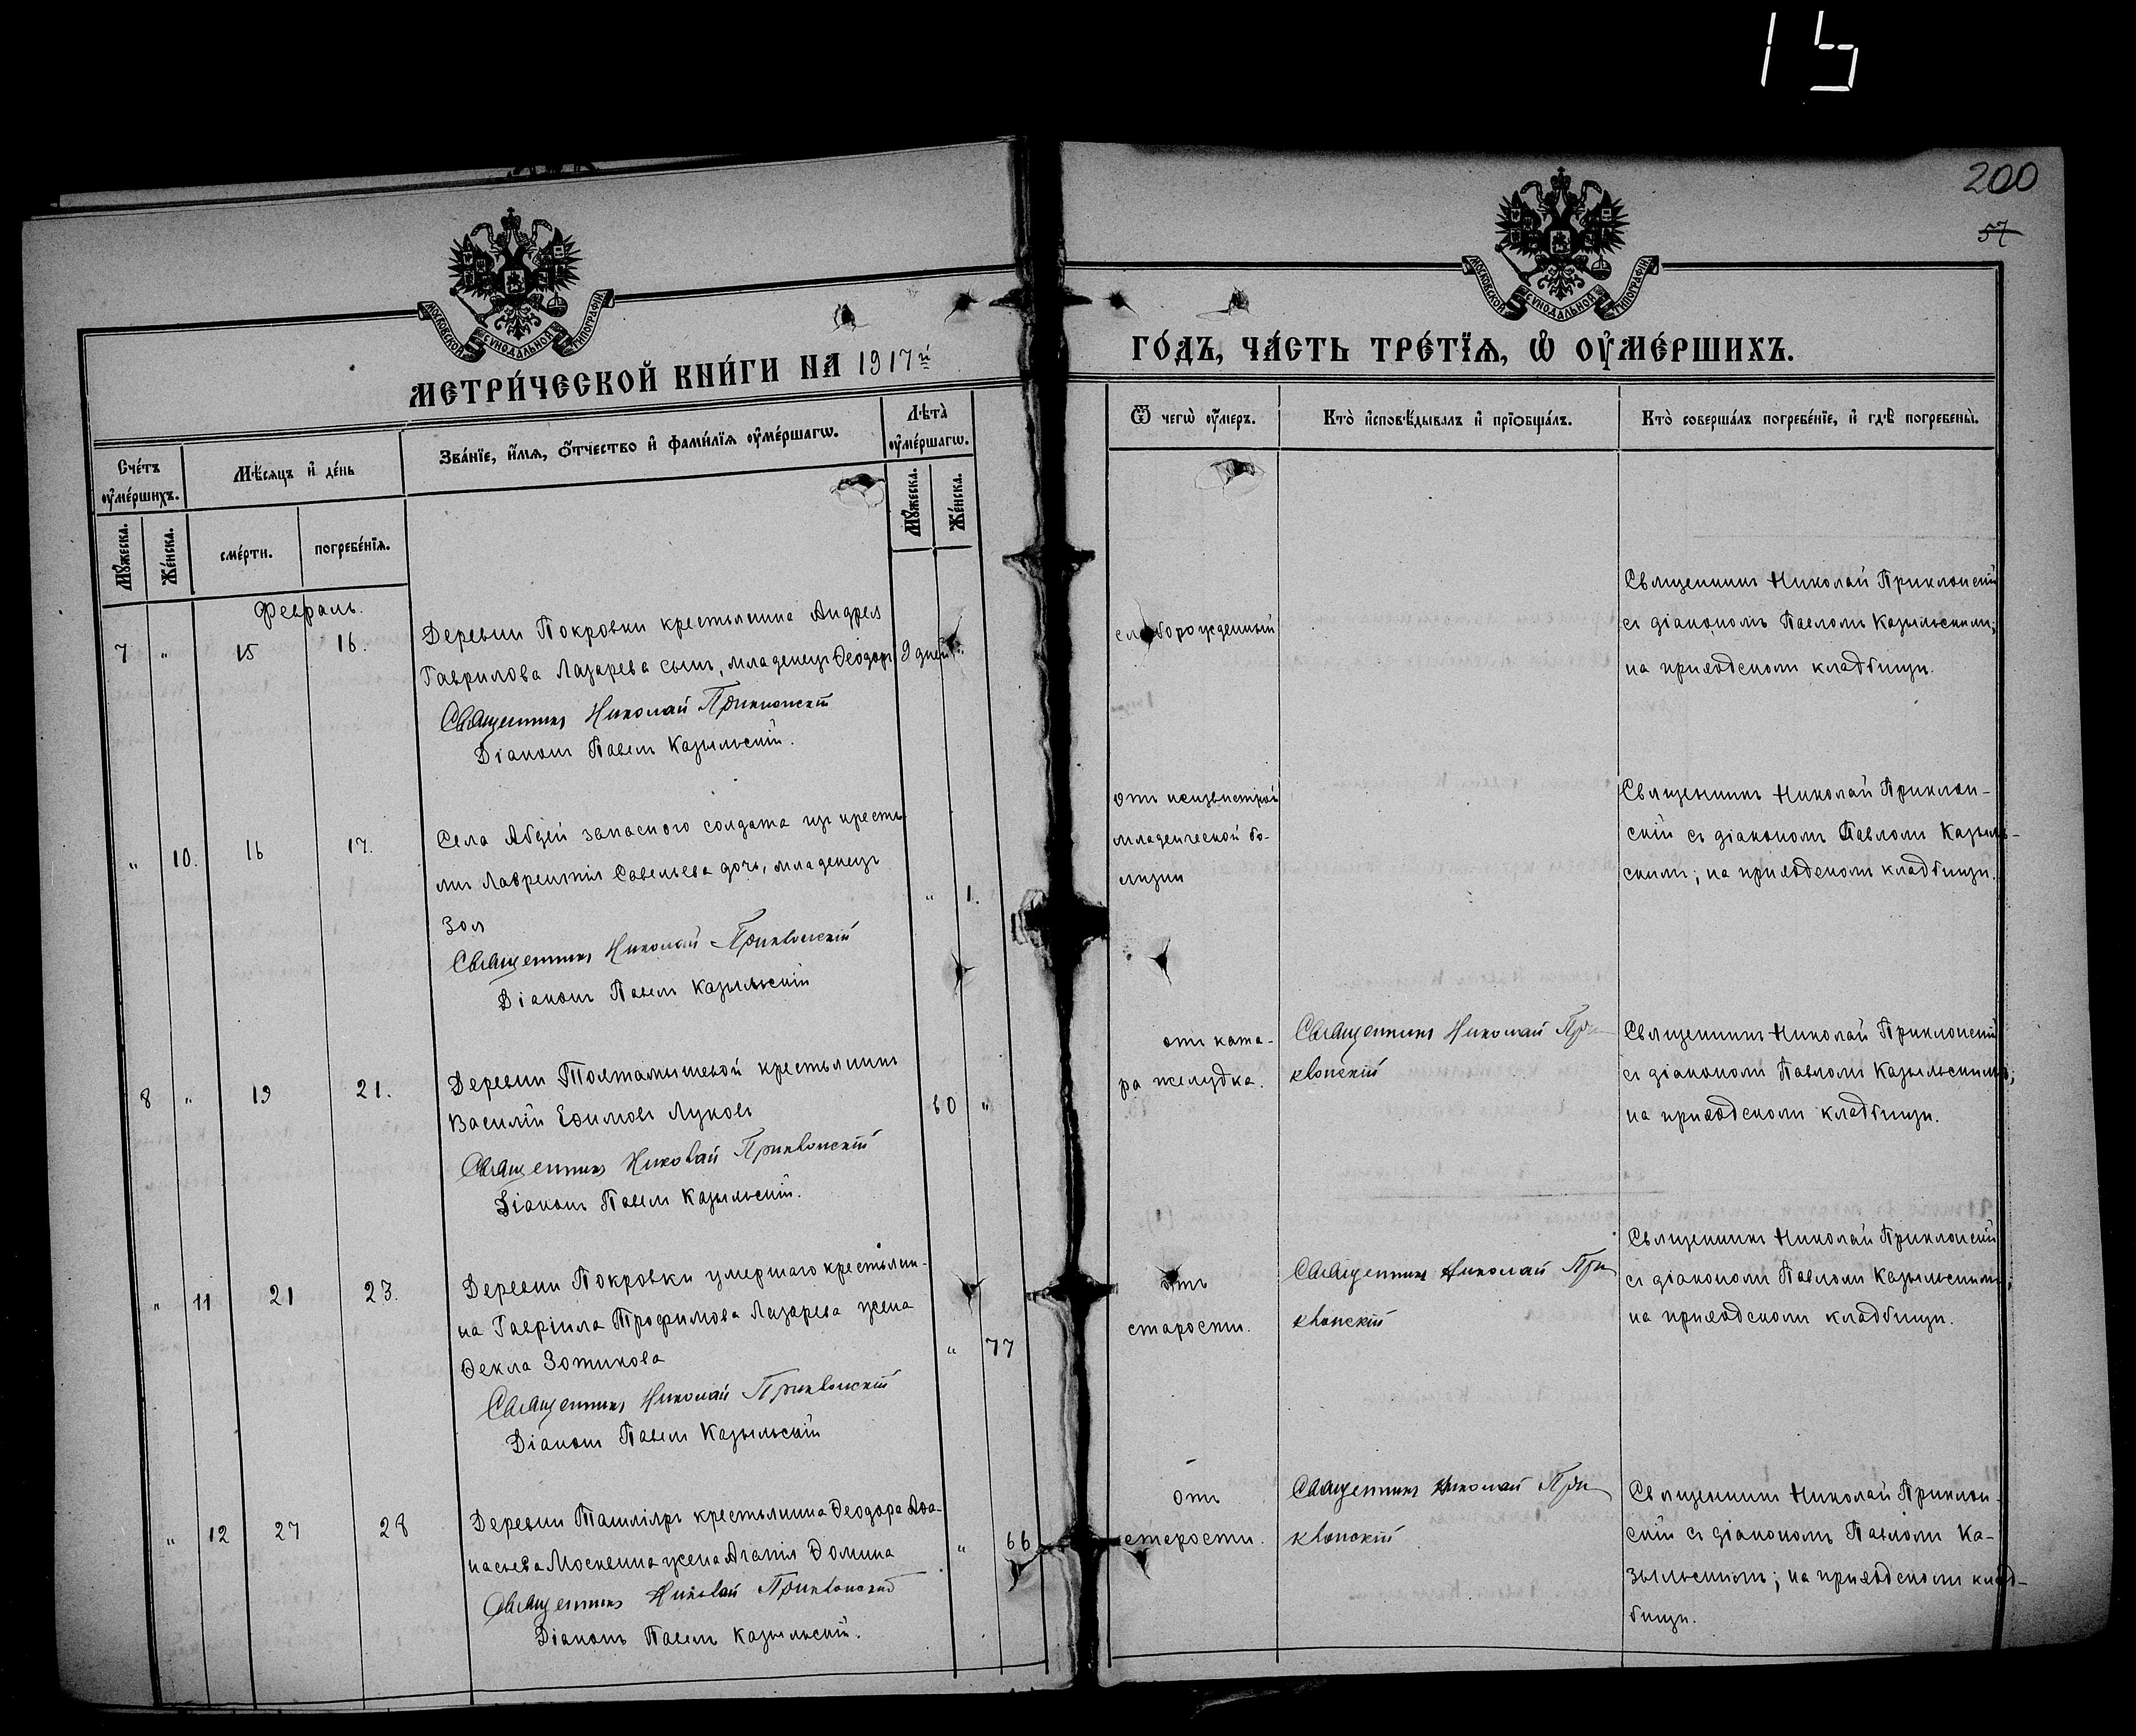 15
200
57
МОСКОВСКОЙ СѴНОДАЛЬНОЙ ТИПОГРАФІИ
МОСКОВСКОЙ СѴНОДАЛЬНОЙ ТИПОГРАФІИ
МЕТРИ́ЧЕСКОЙ КНИ́ГИ НА 1917й
ГО́ДЪ, ЧА́СТЬ ТРЕ́ТЇѦ, Ѡ҆ ОУ҆МЕ́РШИХЪ.
Сче́тъ оу҆ме́ршихъ.
Мѣ́сяцъ и҆ де́нь
Зва́нїе, и҆́мѧ, ѻ҆́тчество и҆ фами́лїѧ оу҆ме́ршагѡ.
Лѣ́та оу҆ме́ршагѡ.
Ѿ чегѡ̀ оу҆́меръ.
Кто̀ и҆сповѣ́дывалъ и҆ прїѻбща́лъ.
Кто̀ соверша́лъ погребе́нїе, и҆ гдѣ̀ погребены̀.
Мꙋ́жеска.
Же́нска.
сме́рти.
погребе́нїѧ.
Мꙋ́жеска.
Же́нска.
Февраль.
7 " 15 16.
Деревни Покровки крестьянина Андрея
Гаврилова Лазарева сынъ, младенецъ Ѳеодоръ
9 дней "
Священникъ Николай Приклонскій
Діаконъ Павелъ Казыльскій.
слаборожденный
Священникъ Николай Приклонскій
съ діакономъ Павломъ Казыльскимъ;
на приходскомъ кладбищѣ.
" 10. 16 17.
Села Абдей запаснаго солдата изъ кресть
янъ Лаврентія Савельева дочь, младенецъ
Зоя
" 1.
Священникъ Николай Приклонскій
Діаконъ Павелъ Казыльскій
отъ неизвѣстной
младенческой бо-
лѣзни
Священникъ Николай Приклон-
скій съ діакономъ Павломъ Казыль-
скимъ; на приходскомъ кладбищѣ.
8 " 19 21.
Деревни Тохтамышевой крестьянинъ
Василій Ефимовъ Луковъ
60 "
Священникъ Николай Приклонскій
Діаконъ Павелъ Казыльскій.
отъ ката-
ра желудка.
Священникъ Николай При
клонскій
Священникъ Николай Приклонскій
съ діакономъ Павломъ Казыльскимъ;
на приходскомъ кладбищѣ.
" 11 21 23.
Деревни Покровки умершаго крестьяни-
на Гавріила Трофимова Лазарева жена
Ѳекла Зотикова
" 77
Священникъ Николай Приклонскій
Діаконъ Павелъ Казыльскій
отъ
старости.
Священникъ Николай При
клонскій
Священникъ Николай Приклонскій
съ діакономъ Павломъ Казыльскимъ;
на приходскомъ кладбищѣ.
" 12 27 28
Деревни Ташлияръ крестьянина Ѳеодора Аѳа-
насьева Москвина жена Агапія Ѳомина
" 66
Священникъ Николай Приклонскій
Діаконъ Павелъ Казыльскій.
Отъ
старости.
Священникъ Николай При
клонскій
Священникъ Николай Приклон-
скій съ діакономъ Павломъ Ка-
зыльскимъ; на приходскомъ клад-
бищѣ.